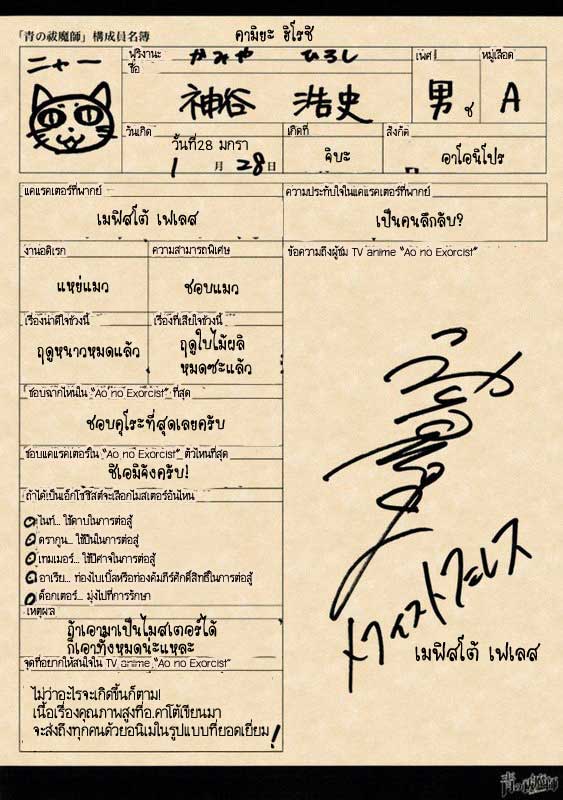 「青の祓魔師」構成員名簿
คามิยะ ฮิโรชิ
ニャー
ฟุริงานะ かみや ひろし
ชื่อ
神谷 浩史
เพศ
男 ช
หมู่เลือด
A
วันเกิด
วันที่28 มกรา
1月28日
เกิดที่
จิบะ
สังกัด
อาโอนิโปร
แคแรคเตอร์ที่พากย์
เมฟิสโต้ เฟเลส
ความประทับใจในแคแรคเตอร์ที่พากย์
เป็นคนลึกลับ?
งานอดิเรก
แหย่แมว
ความสามารถพิเศษ
ชอบแมว
เรื่องน่าดีใจช่วงนี้
ฤดูหนาวหมดแล้ว
เรื่องที่เสียใจช่วงนี้
ฤดูใบไม้ผลิ
หมดซะแล้ว
ชอบฉากไหนใน "Ao no Exorcist" ที่สุด
ชอบคุโระที่สุดเลยครับ
ชอบแคแรคเตอร์ใน "Ao no Exorcist" ตัวไหนที่สุด
ชิเอมิจังครับ!
ถ้าได้เป็นเอ็กโซซิสต์จะเลือกไมสเตอร์อันไหน
ไนท์... ใช้ดาบในการต่อสู้
ดรากูน... ใช้ปืนในการต่อสู้
เทมเมอร์... ใช้ปีศาจในการต่อสู้
อาเรีย... ท่องไบเบิ้ลหรือท่องคัมภีร์ศักดิ์สิทธิ์ในการต่อสู้
ด็อกเตอร์... มุ่งไปที่การรักษา
เหตุผล
ถ้าเอามาเป็นไมสเตอร์ได้
ก็เอาทั้งหมดน่ะแหละ
จุดที่อยากให้สนใจใน TV anime "Ao no Exorcist"
ไม่ว่าอะไรจะเกิดขึ้นก็ตาม!
เนื้อเรื่องคุณภาพสูงที่อ.คาโต้เขียนมา
จะส่งถึงทุกคนด้วยอนิเมในรูปแบบที่ยอดเยี่ยม!
ข้อความถึงผู้ชม TV anime "Ao no Exorcist"
メフィストフェレス
เมฟิสโต้ เฟเลส
青の祓魔師